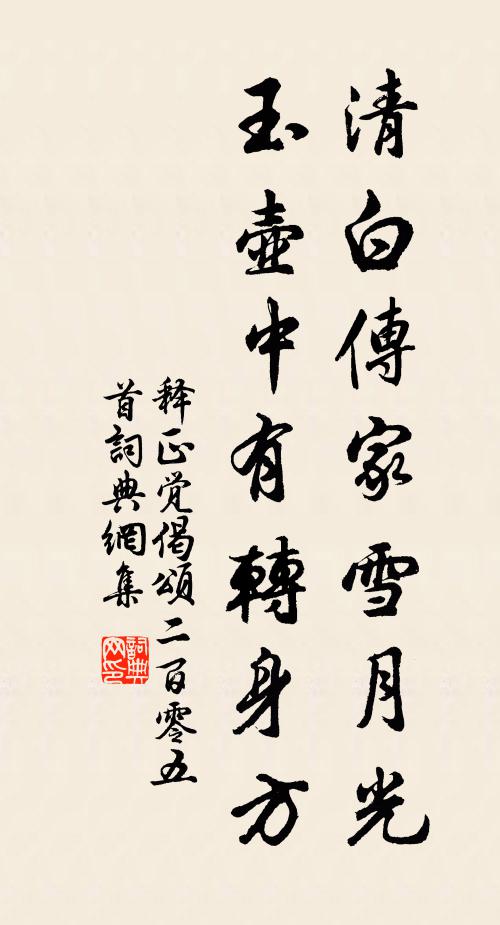 清白傳家雪月光
玉壺中有轉身方
释正覚偈頌二百零五
首詞典網集
詞典網印